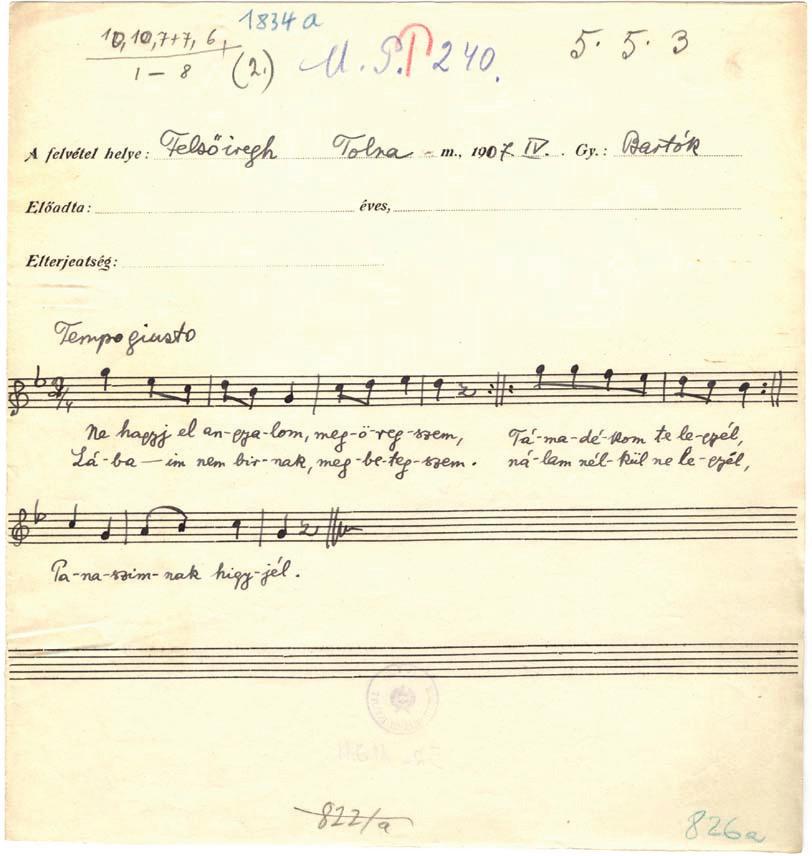 1834a
10, 10, 7+7, 6,
1 - 8
(2.)
M. P. 240.
5. 5. 3
A felvétel helye: Felsőiregh Tolna - m., 1907. IV. Gy.: Bartók
Előadta: éves,
Elterjedtség:
Tempo giusto
2/4
Ne hagyj el an-gya-lom, meg-ö-reg-szem, Tá-ma-dé-kom te le-gyél,
Lá-ba-im nem bir-nak, meg-be-teg-szem. ná-lam nél-kül ne le-gyél,
Pa-na-szim-nak higy-jél.
822/a
826a